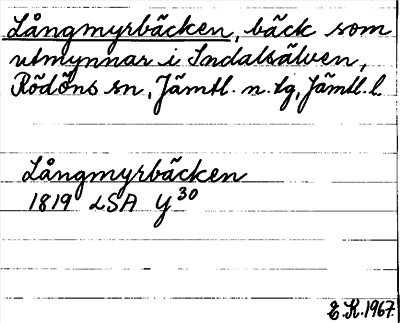 Långmyrbäcken, bäck som
utmynnar i Indalsälven,
Rödöns sn, Jämtl. n. tg, Jämtl. l.
Långmyrbäcken
1819 LSA Y 30
E. K. 1967.